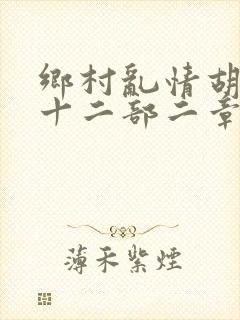 鄉村亂情胡
十二部二章
薄禾紫煙